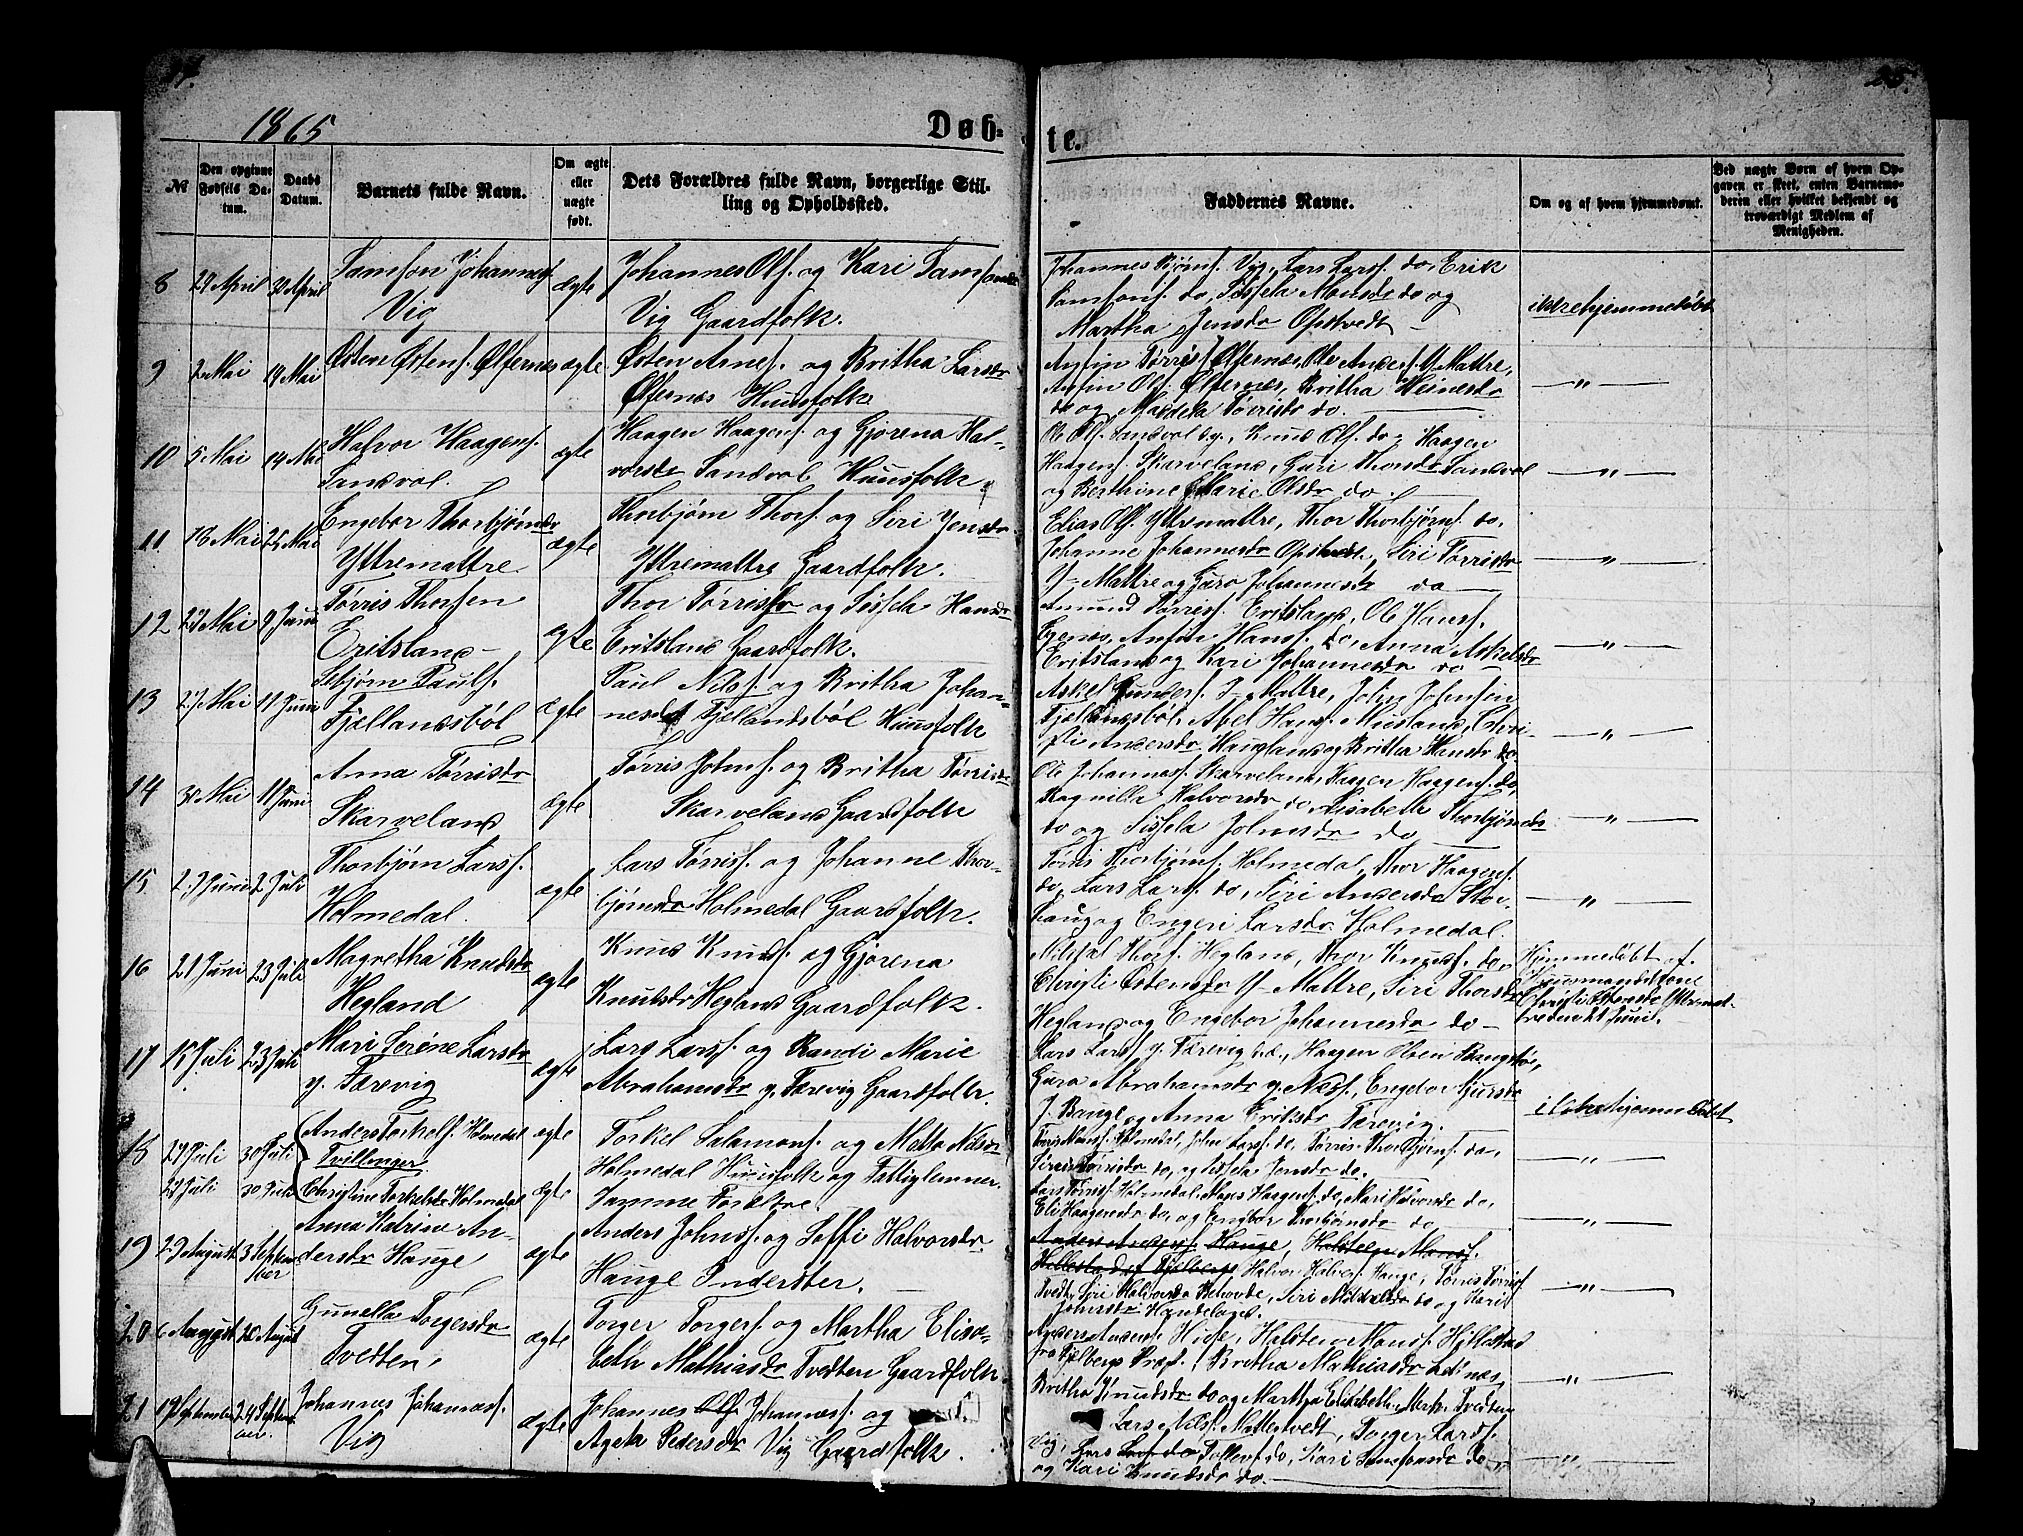 25.
1865
Døb-
te.
№
Den opgivne Fødsels Datum.
Daabs Datum.
Barnets fulde Navn.
Om ægte eller uægte født.
Dets Forældres fulde Navn, borgerlige Stilling og Opholdssted.
Faddernes Navne.
Om og af hvem hjemmedøbt.
Ved uægte Børn af hvem Opgaven er skeet, enten Barnemoderen eller hvilket bekjendt og troværdigt Medlem af Menigheden.
8 29 April 30 April Samson Johanness. Vig ægte Johannes Ols. og Kari Samsonsdr
Vig Gaardfolk.
Johannes Bjørns. Vig, Lars Larss. do, Erik
Samsons. do, Sissela Monsdr do og
Martha Jensdr Opstvedt
ikke hjemmedøbt
9 2 Mai 14 Mai Østen Østens. Ølfernæs ægte Østen Arnes. og Britha Larsdr
Ølfernæs Huusfolk
Anfin Tørris. Ølfernæs, Ole Anders. Y. Mattre,
Anfin Ols. Ølfernæs, Britha Heinesdr
do og Magdela Tørrisdr do.
— " —
10 5 Mai 14 Mai Halvor Haagens. Sandvol. ægte Haagen Haagens. og Gjørena Halvorsdr Sandvol Huusfolk
Ole Ols. Sandvol s.g., Knud Ols. do, Haagen
Haagens. Skarveland, Guri Thorsdr Sandvol
og Berthine Marie Olsdr do.
— " —
11 16 Mai 25 Mai Engebor Thorbjørnsdr Yttremattre ægte Thorbjørn Thors. og Siri Jensdr
Yttremattre Gaardfolk.
Elias Ols. Yttremattre, Thor Thorbjørns. do,
Johanne Johannesdr Opstvedt, Siri Tørrisdr
Y-Mattre og Guro Johannesdr do
— " —
12 22 Mai 9 Juni Tørris Thorsen Eritsland ægte Thor Tørriss. og Sissela Hansdr
Eritsland Gaardfolk.
Amund Tørriss. Eritsland, Ole Hanss.
Egenæs, Anfin Hanss. do, Anna Askelsdr
Eritsland og Kari Johannesdr do
— " —
13 27 Mai 11 Juni Asbjørn Pauls. Fjellandsbøl ægte Paul Nils. og Britha Johannesdr Fjellandsbøl Huusfolk
Askel Gunders. I-Mattre, John Johnsen
Fjellandsbøl, Abel Hans. Musland, Christi Andersdr Haugland og Britha Hansdr do.
— " —
14 31 Mai 11 Juni Anna Tørrisdr Skarveland ægte Tørris Johns. og Britha Tørrisdr
Skarveland Gaardfolk
Ole Johanness. Skarveland, Haagen Haagens. do,
Ragnilla Halvorsdr do, Elisabeth Thorbjørnsdr
do og Sissela Johnsdr do
— " —
15 27 Juni 2 Juli Thorbjørn Larss. Holmedal. ægte Lars Tørriss. og Johanne Thorbjørnsdr Holmedal Gaardfolk.
Tørris Thorbjørns. Holmedal, Thor Haagens.
do, Lars Larss. do, Siri Andersdr Stor-
haug og Engeri Larsdr Holmedal.
— " —
16 21 Juni 23 Juli Magretha Knudsdr Hegland ægte Knud Knuds. og Gjørena
Knutsdr Hegland Gaardfolk.
Thors. Hegland, Thor Knuds. do,
Christi Østensdr Y-Mattre, Siri Thorsdr
Hegland og Engebor Johannesdr do
Hjemmedøbt af
Huusmandskone
Christi Østensdr Yttremattre den 21 Juni.
17 15 Juli 23 Juli Mari Serine Larsdr y. Færevig ægte Lars Larss. og Randi Marie
Abrahamsdr y. Færevig Gaardfolk.
Lars Larss. y. Færevig, Haagen Olsen Bangsbøe,
Guro Abrahamsdr y. Næss, Engebor Gjursdr
J. Bauge og Anna Eriksdr Færevig.
ikke hjemmedøbt
18 29 Juli 30 Juli Anders Torkels. Holmedal ægte
Tvillinger
29 Juli 30 Juli Christine Torkelsdr Holmedal ægte
Torkel Salamons. og Metta Nilsdr
Holmedal Huusfolk og Fattiglemmer.
Samme Forældre.
Tørris Mons. Holmedal, John Larss. do, Tørris Thorbjørns. do,
Siri Tørrisdr do, og Sissela Jensdr do.
— " —
Lars Tørriss. Holmedal, Mons Haagens. do, Mari Halvorsdr do,
Eli Haagensdr do, og Engebor Thorbjørnsdr do
— " —
19 29 August 3 September Anna Katrine Andersdr Hauge ægte Anders Johnss. og Soffi Halvorsdr
Hauge Inderster.
Anders Anders. Hauge, Halsteen Mons.
Hellestad
Halvor Halvors. Hauge, Tørris Tørriss.
Tvedt, Siri Halvorsdr do, Siri do og Kari
Johnsdr Handeland.
— " —
20 6 August 20 August Gunella Torgersdr Tvedten. ægte Torger Torgers. og Martha Elisabeth Mathiasdr Tvedten Gaardfolk
Anders Anders. Hauge, Halsten Mons. Hillestad
fra Fjelbergs Præst., Britha Mathiasdr
Britha Knudsdr do og Martha Elisabeth Tvedten
21 19 September 24 September Johannes Johanness. Vig ægte Johannes Ols. Johanness. og
Agete Pedersdr Vig Gaardfolk.
Lars Nils. Nattestvedt, Torger Lards.
Vig, Lars do, Tollev do, Kari Samsonsdr do
og Kari Knudsdr do.
— " —